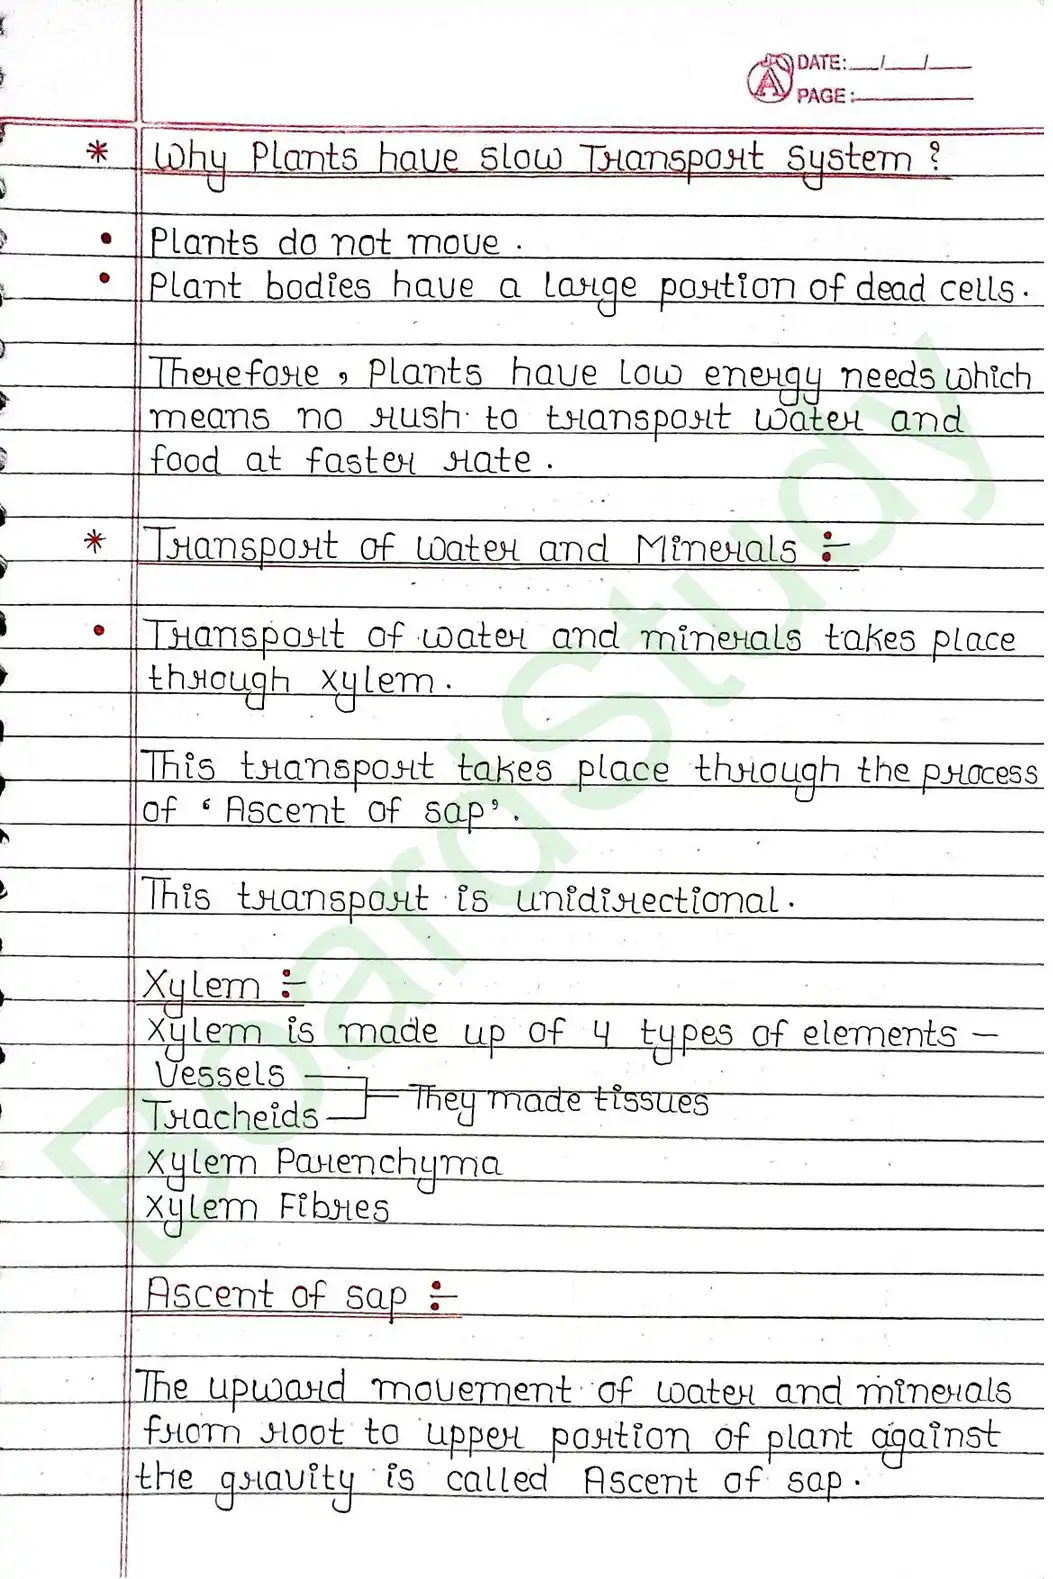 DATE: __/__/__
PAGE: ______
* Why Plants have slow Transport System ?
• Plants do not move .
• Plant bodies have a large portion of dead cells .
Therefore , Plants have low energy needs which
means no rush to transport water and
food at faster rate .
* Transport of water and Minerals :-
• Transport of water and minerals takes place
through xylem .
This transport takes place through the process
of ‘ Ascent of sap’ .
This transport is unidirectional .
Xylem :-
Xylem is made up of 4 types of elements –
Vessels
They made tissues
Tracheids
Xylem Parenchyma
Xylem Fibres
Ascent of sap :-
The upward movement of water and minerals
from root to upper portion of plant against
the gravity is called Ascent of sap .
BoardStudy